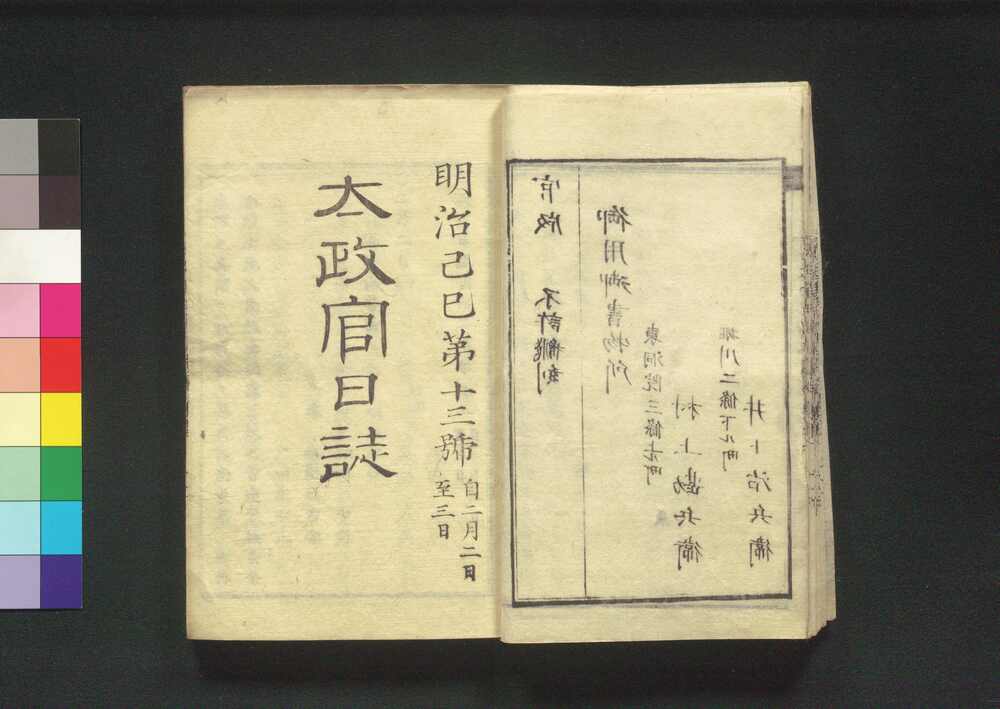 官版 不許飜刻
御用御書物所
東洞院三條上ル町
村上勘兵衛
堀川二條下ル町
井上治兵衛
明治己巳第十三號
自二月二日
至三日
太政官日誌